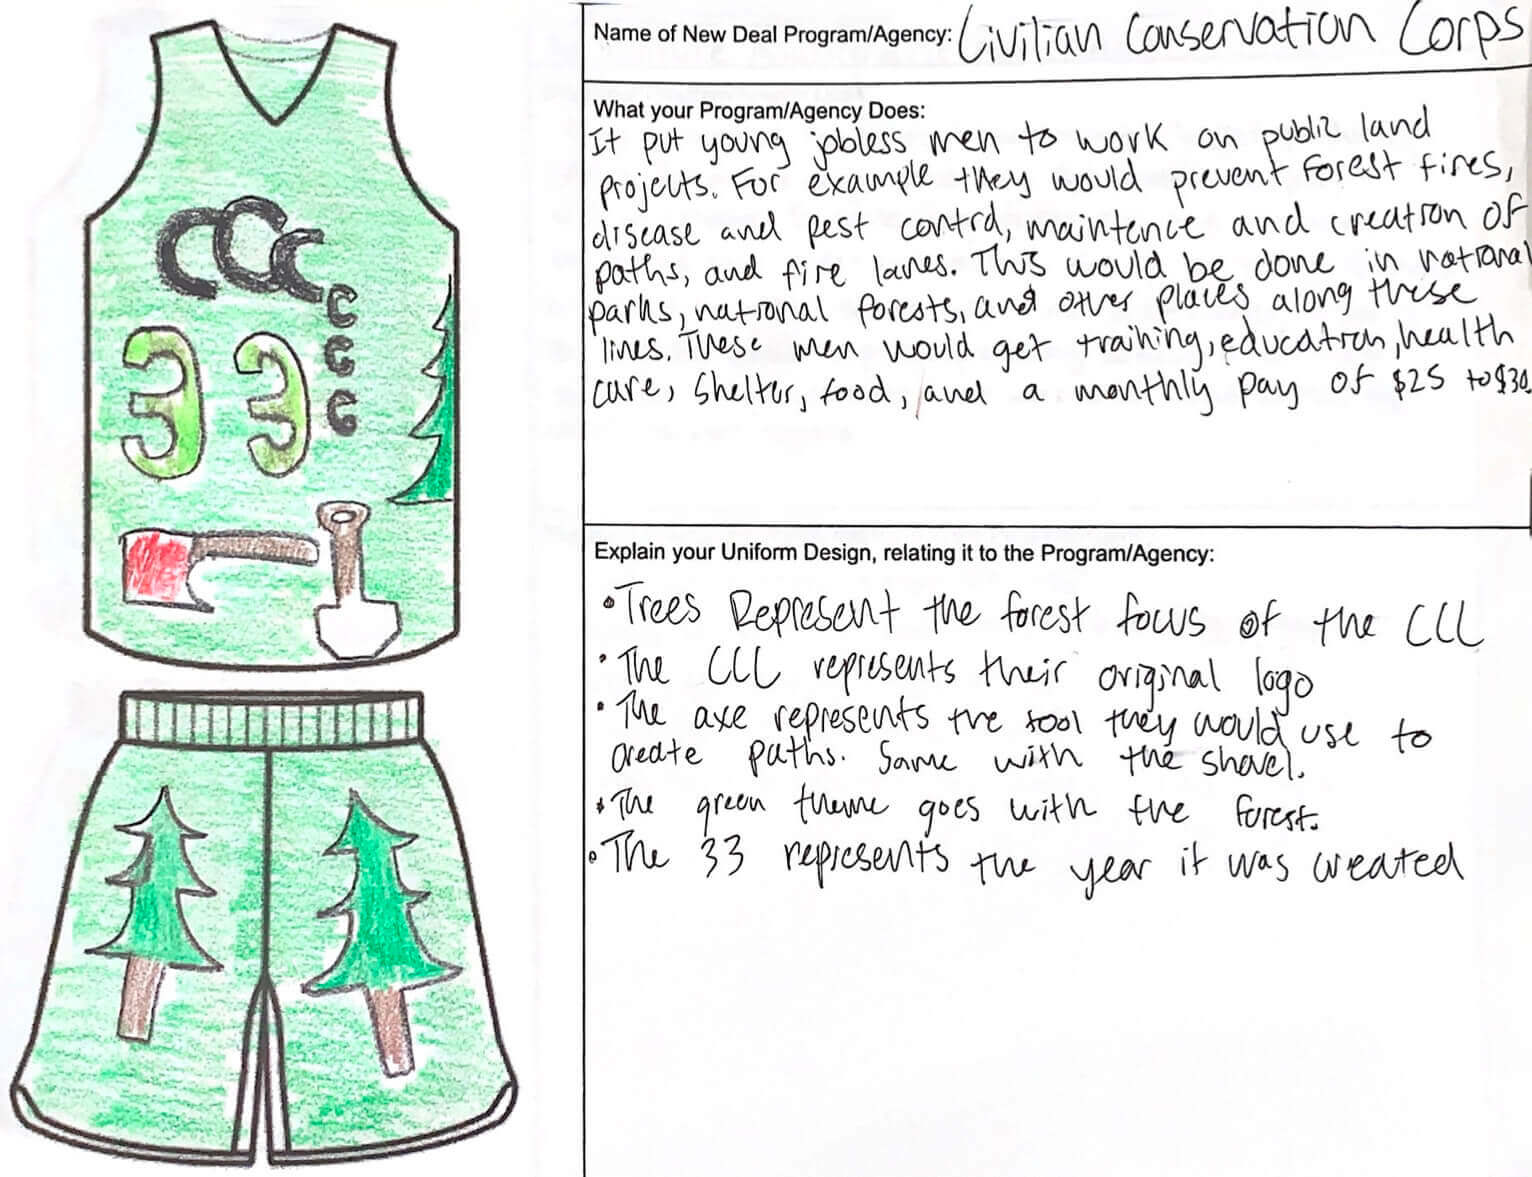 CCC
C
C
C
33
Name of New Deal Program/Agency: Civilian Conservation Corps
What your Program/Agency Does:
It put young jobless men to work on public land
projects. For example they would prevent forest fires,
disease and pest control, maintence and creation of
paths, and fire lanes. This would be done in national
parks, national forests, and other places along these
lines. These men would get training, education, health
care, shelter, food, and a monthly pay of $25 to $30
Explain your Uniform Design, relating it to the Program/Agency:
• Trees Represent the forest focus of the CCC
• The CCC represents their original logo
• The axe represents the tool they would use to
create paths. Same with the shovel.
• The green theme goes with the forest.
• The 33 represents the year it was created